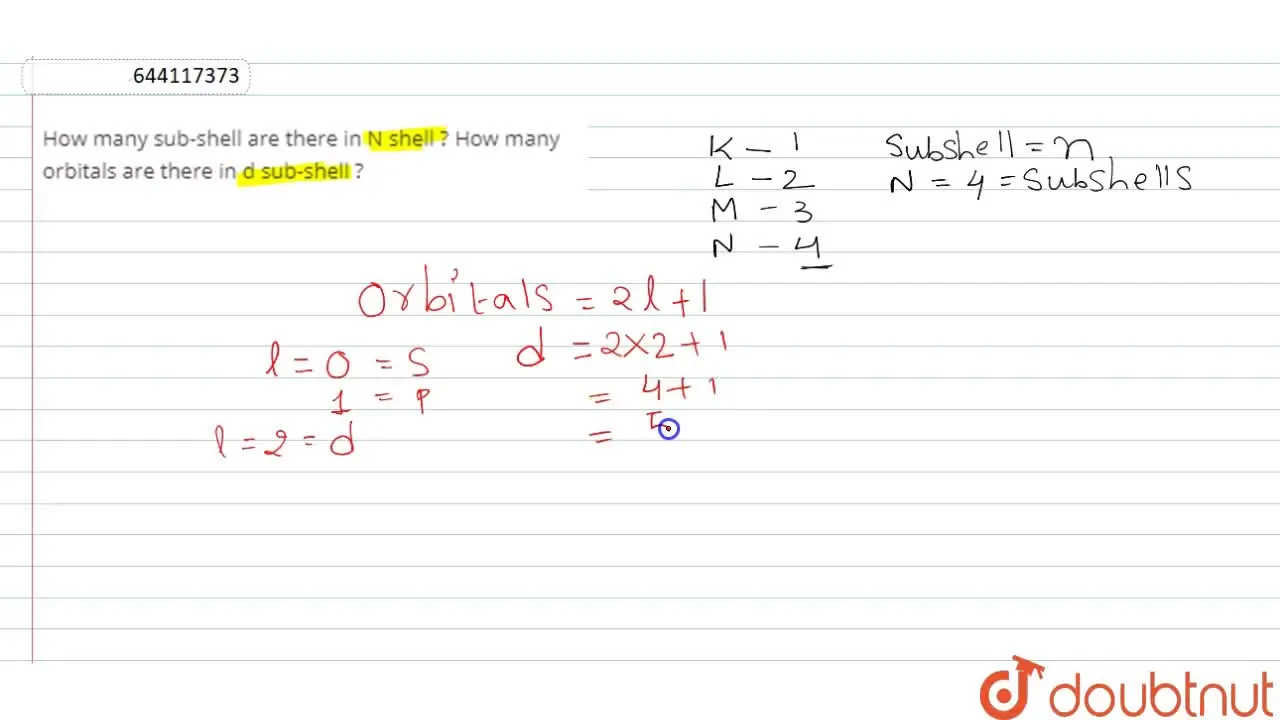 644117373
How many sub-shell are there in N shell ? How many
orbitals are there in d sub-shell ?
K - 1
L - 2
M - 3
N - 4
Subshell = n
N = 4 = Subshells
Orbitals = 2l + 1
l = 0 = S
1 = P
l = 2 = d
d = 2 × 2 + 1
= 4 + 1
= 5
doubtnut